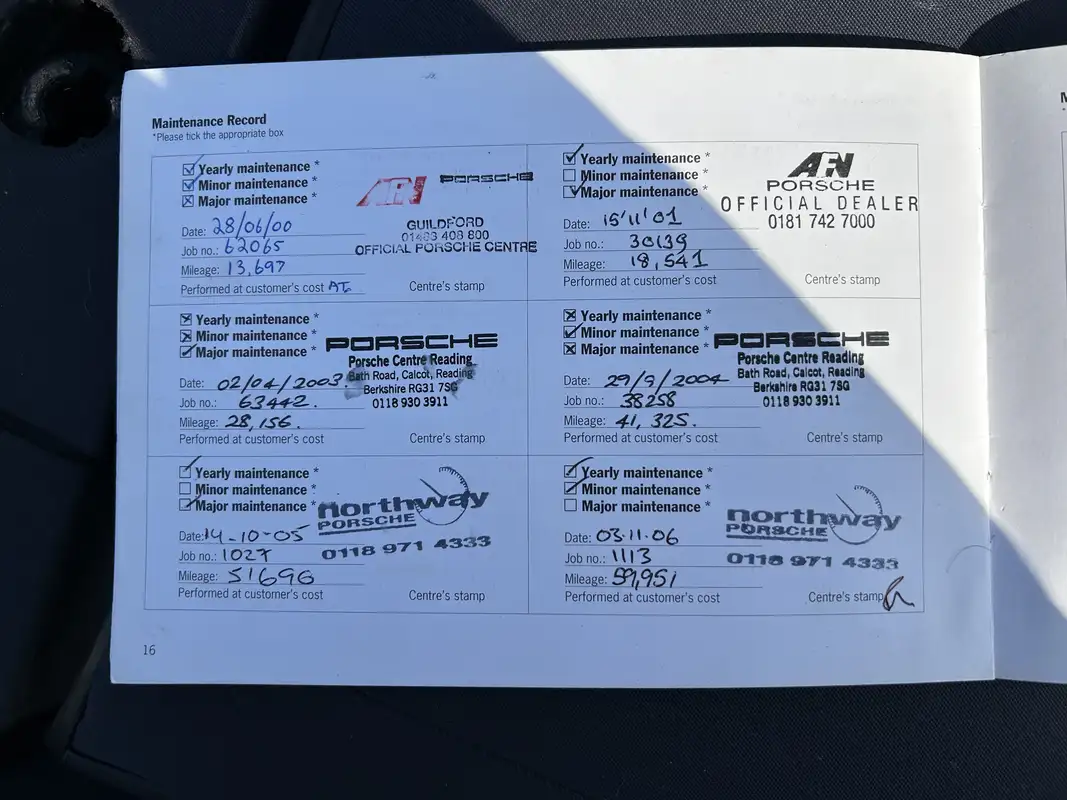 Maintenance Record
*Please tick the appropriate box
Yearly maintenance *
Minor maintenance *
Major maintenance *
Date: 28/06/00
Job no.: 62065
Mileage: 13,697
Performed at customer's cost
Centre's stamp
AFN PORSCHE
GUILDFORD
01483 408 800
OFFICIAL PORSCHE CENTRE
Yearly maintenance *
Minor maintenance *
Major maintenance *
Date: 15'11'01
Job no.: 30139
Mileage: 18,541
Performed at customer's cost
Centre's stamp
AFN
PORSCHE
OFFICIAL DEALER
0181 742 7000
Yearly maintenance *
Minor maintenance *
Major maintenance *
Date: 02/04/2003.
Job no.: 63442.
Mileage: 28,156.
Performed at customer's cost
Centre's stamp
PORSCHE
Porsche Centre Reading
Bath Road, Calcot, Reading
Berkshire RG31 7SG
0118 930 3911
Yearly maintenance *
Minor maintenance *
Major maintenance *
Date: 29/9/2004
Job no.: 38258
Mileage: 41,325.
Performed at customer's cost
Centre's stamp
PORSCHE
Porsche Centre Reading
Bath Road, Calcot, Reading
Berkshire RG31 7SG
0118 930 3911
Yearly maintenance *
Minor maintenance *
Major maintenance *
Date: 14-10-05
Job no.: 1027
Mileage: 51696
Performed at customer's cost
Centre's stamp
northway
PORSCHE
0118 971 4333
Yearly maintenance *
Minor maintenance *
Major maintenance *
Date: 03.11.06
Job no.: 1113
Mileage: 59,951
Performed at customer's cost
Centre's stamp
northway
PORSCHE
0118 971 4333
16